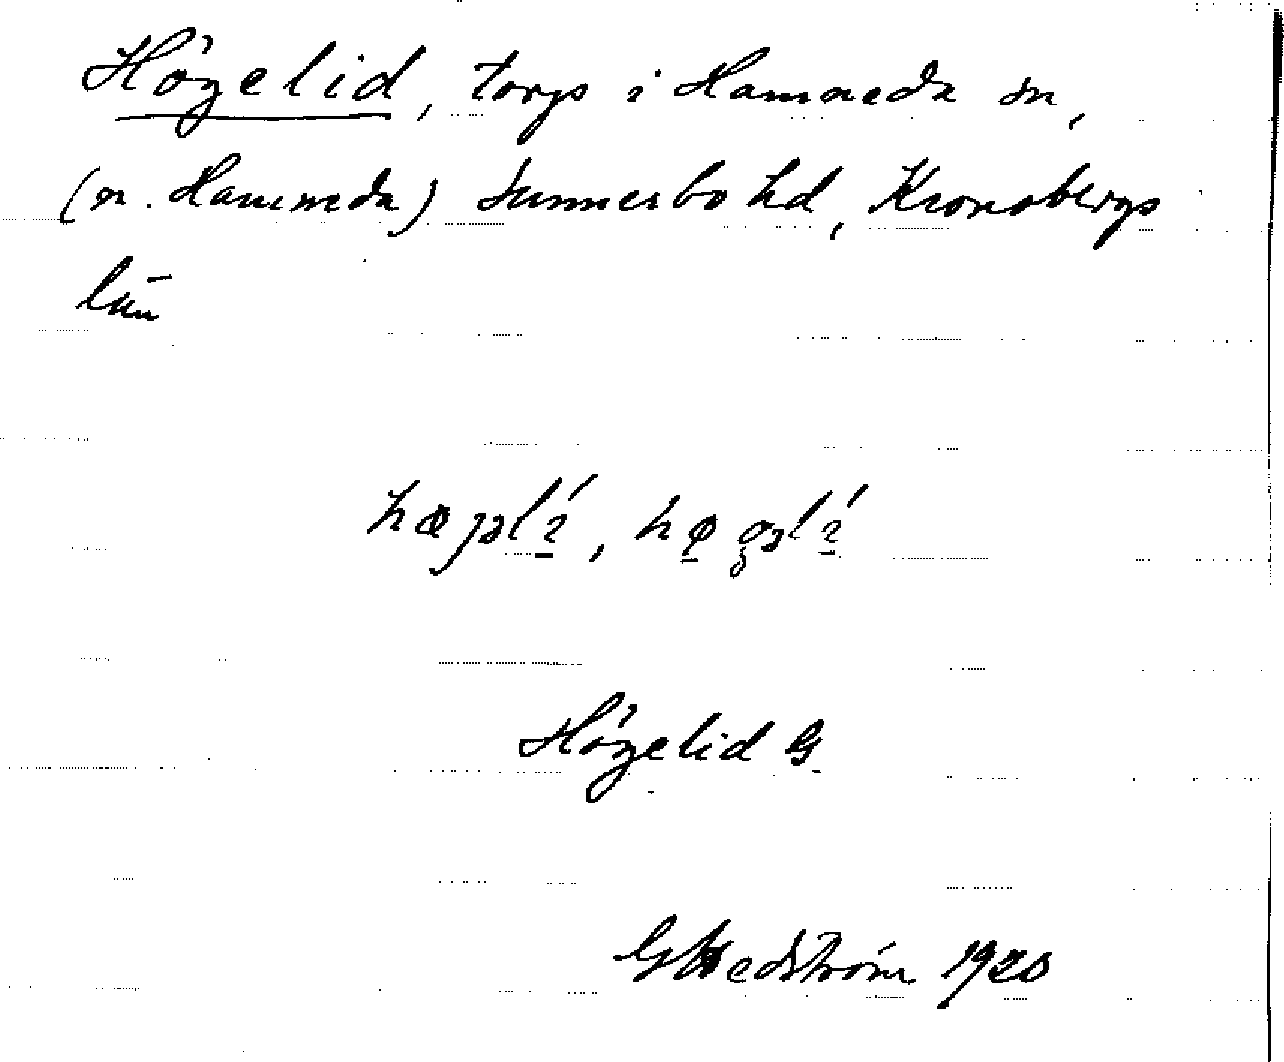 Högelid, torp i Hamneda sn,
(n. Hamneda) Sunnerbo hd, Kronobergs
län
Högelid G.
G Hedström 1920